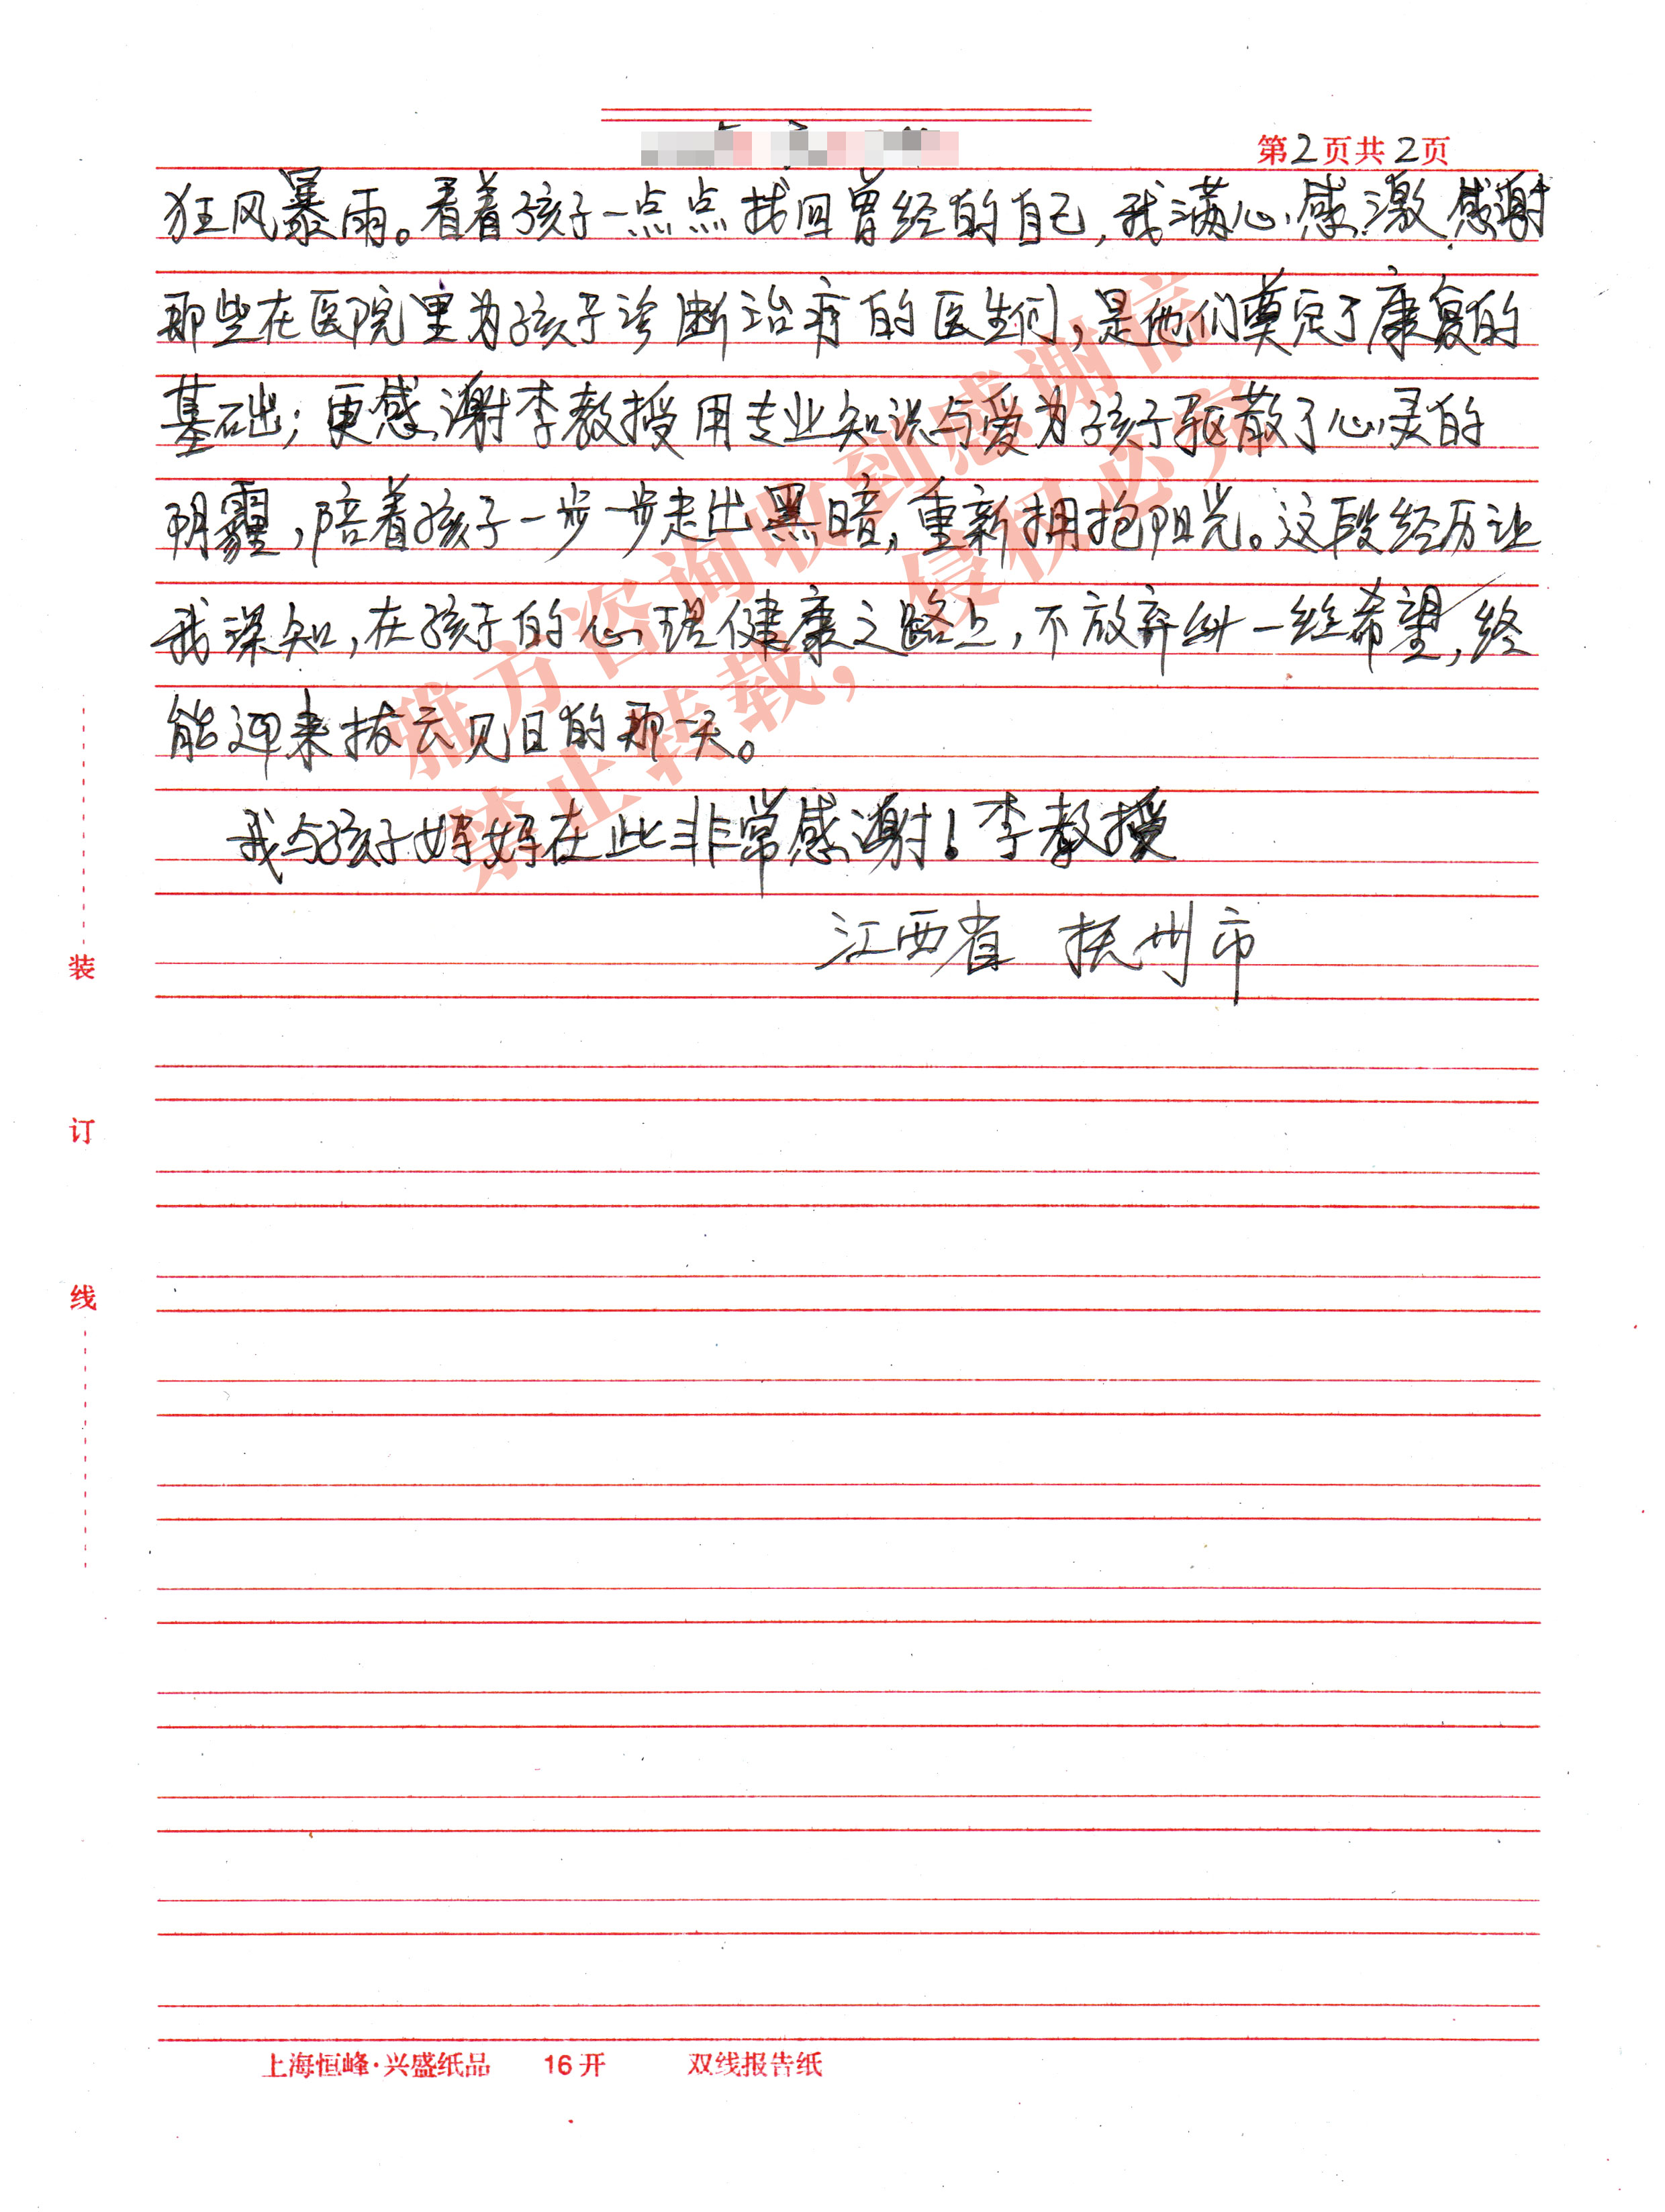 第2页共2页
狂风暴雨。看着孩子一点点找回曾经的自己，我满心感激感谢
那些在医院里为孩子诊断治疗的医生们，是他们奠定了康复的
基础；更感谢李教授用专业知识与爱为孩子驱散了心灵的
阴霾，陪着孩子一步一步走出黑暗，重新拥抱阳光。这段经历让
我深知，在孩子的心理健康之路上，不放弃每一丝希望，终
能迎来拔云见日的那一天。
我与孩子妈妈在此非常感谢！李教授
江西省 抚州市
雅方咨询收到感谢信
禁止转载，侵权必究
装
订
线
上海恒峰·兴盛纸品 16开 双线报告纸